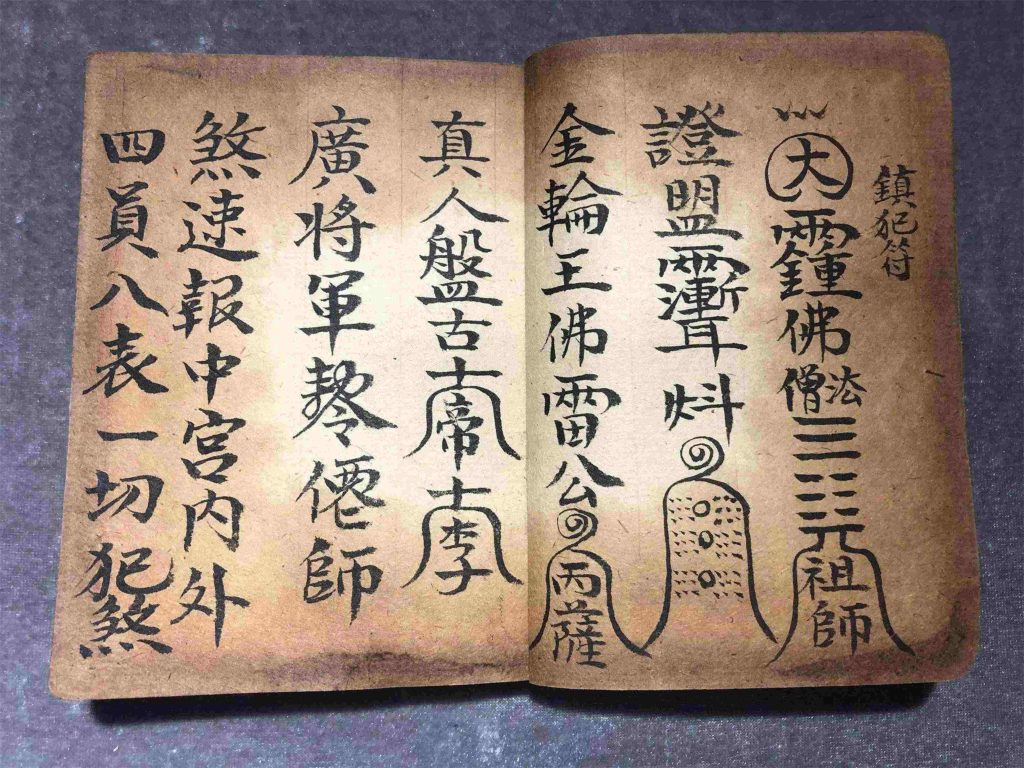 鎮犯符
大佛法僧三三元祖師
證盟炓
金輪王佛雷公丙薩
真人盤古士帝士李
廣将軍僊師
煞速報中宮内外
四員八表一切犯煞